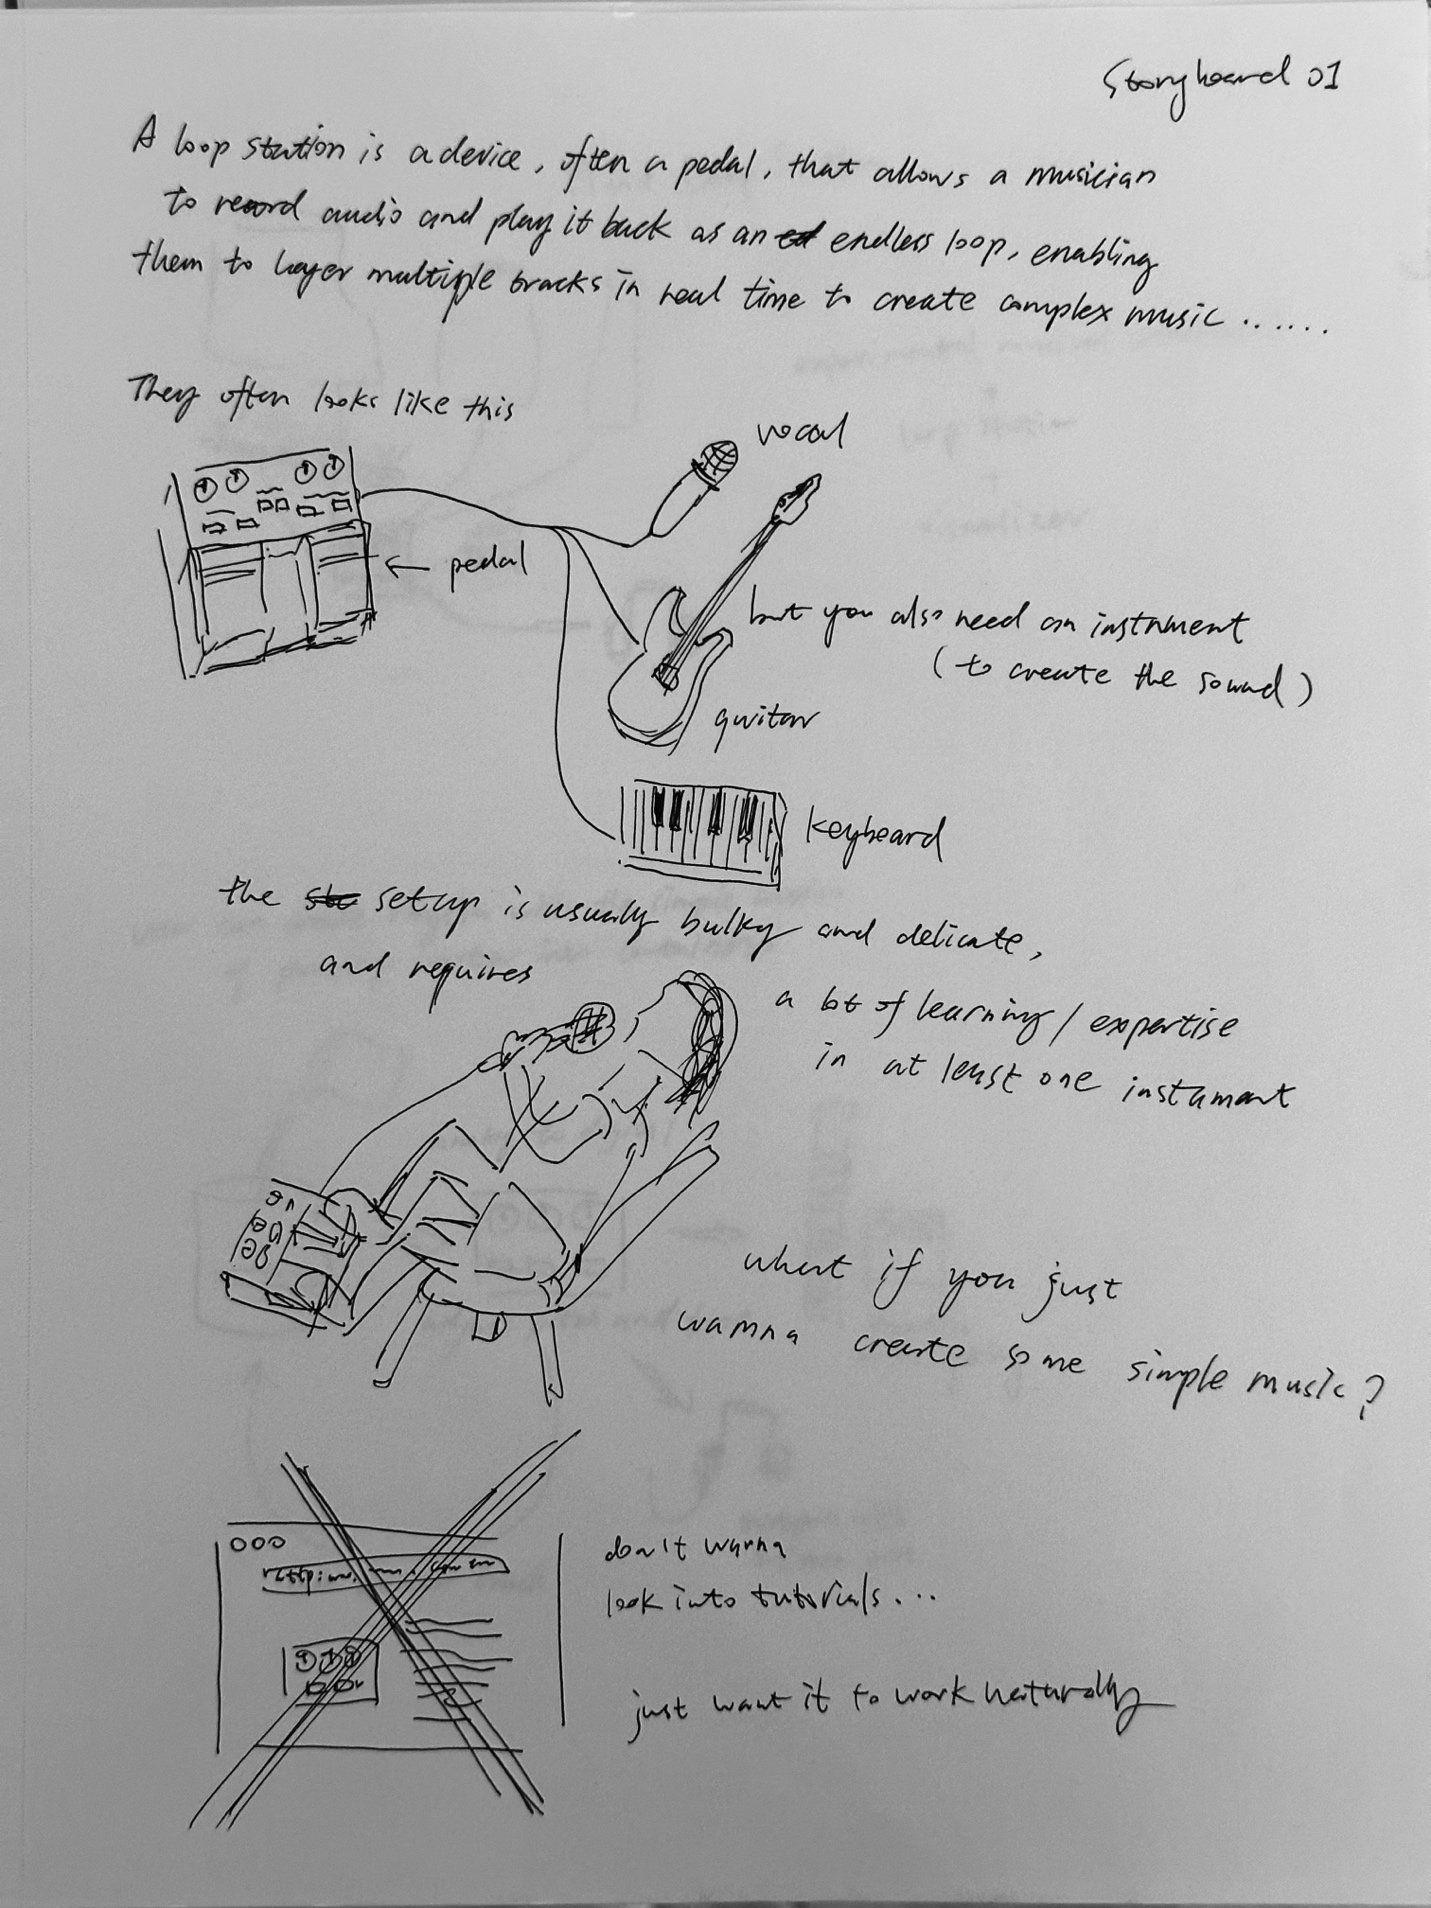 Storyboard 01
A loop station is a device, often a pedal, that allows a musician
to record audio and play it back as an endless loop, enabling
them to layer multiple tracks in real time to create complex music ......
They often looks like this
vocal
← pedal
but you also need an instrument
(to create the sound)
guitar
keyboard
the setup is usually bulky and delicate,
and requires
a lot of learning / expertise
in at least one instrument
what if you just
wamna create some simple music?
http:
don't wanna
look into tutorials...
just want it to work naturally